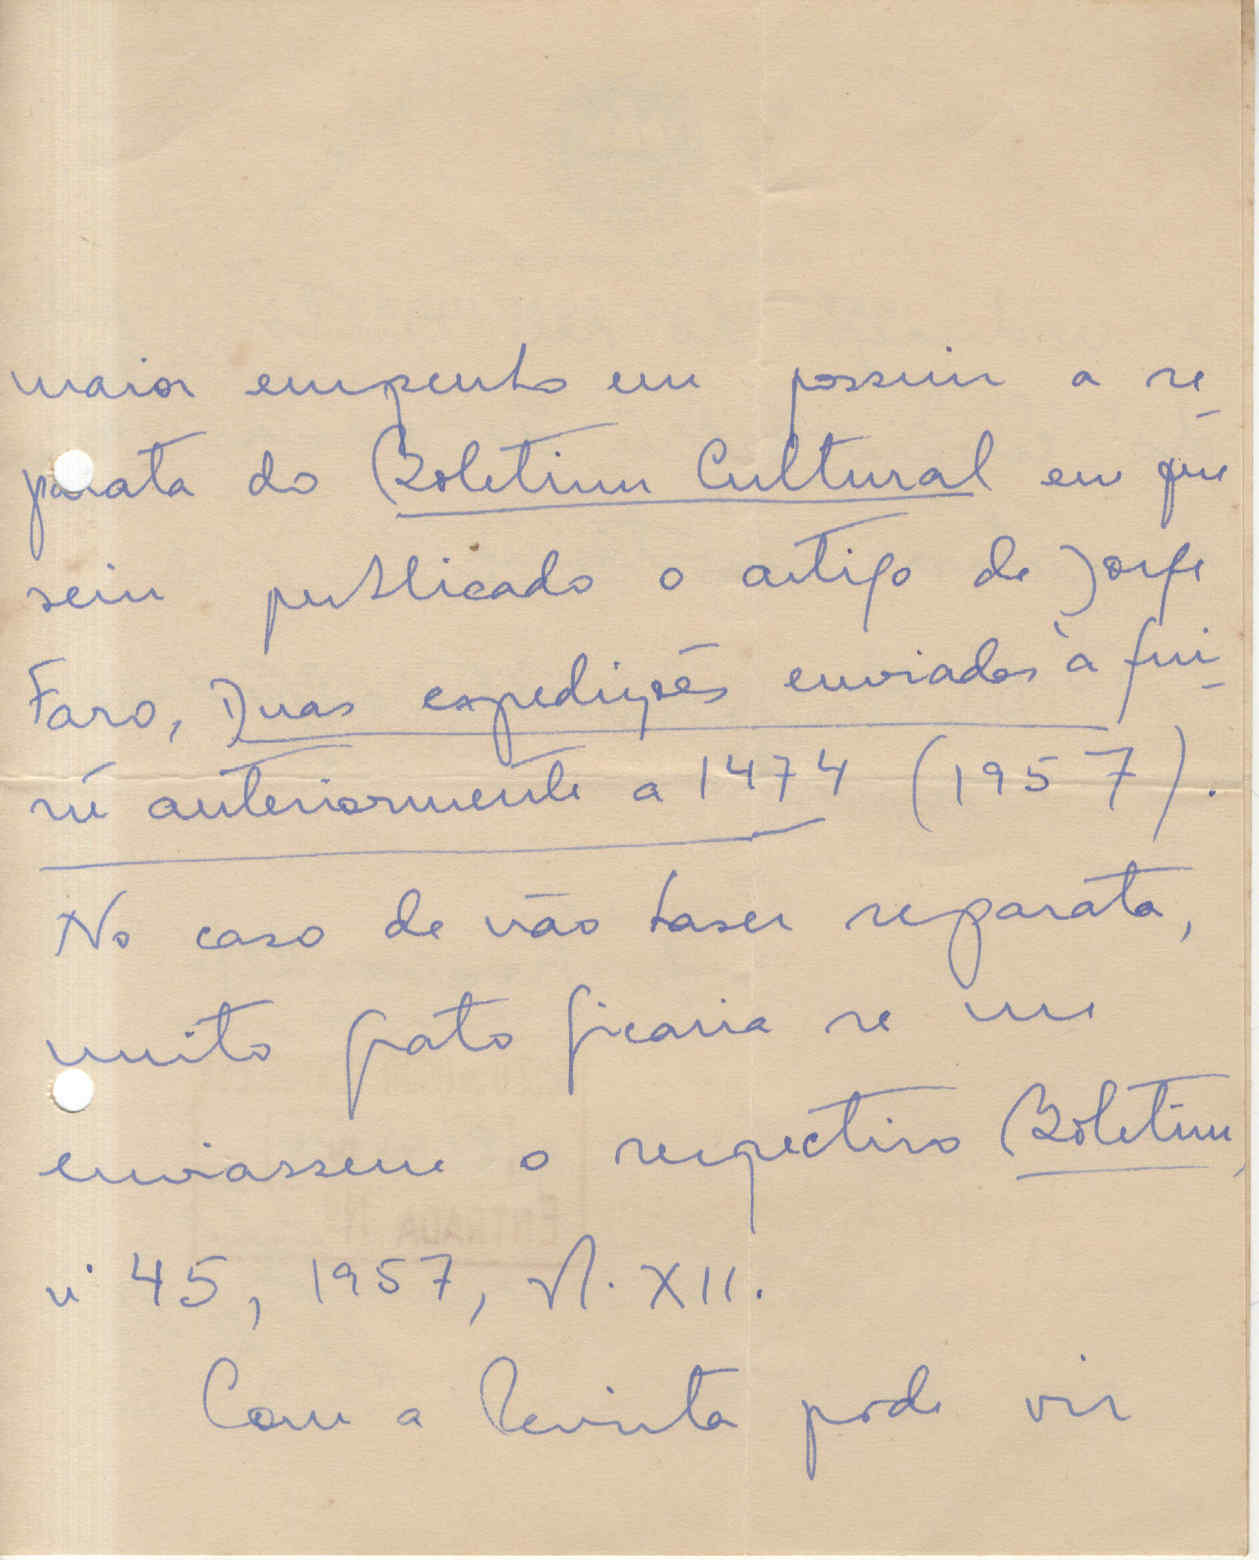 maior empenho em possuir a se-
parata do Boletim Cultural em que
vem publicado o artigo de Jorge
Faro, Duas expedições enviadas à Gui-
né anteriormente a 1474 (1957).
No caso de não haver separata,
muito grato ficaria se me
enviassem o respectivo Boletim,
nº 45, 1957, vol. XII.
Com a Revista pode vir